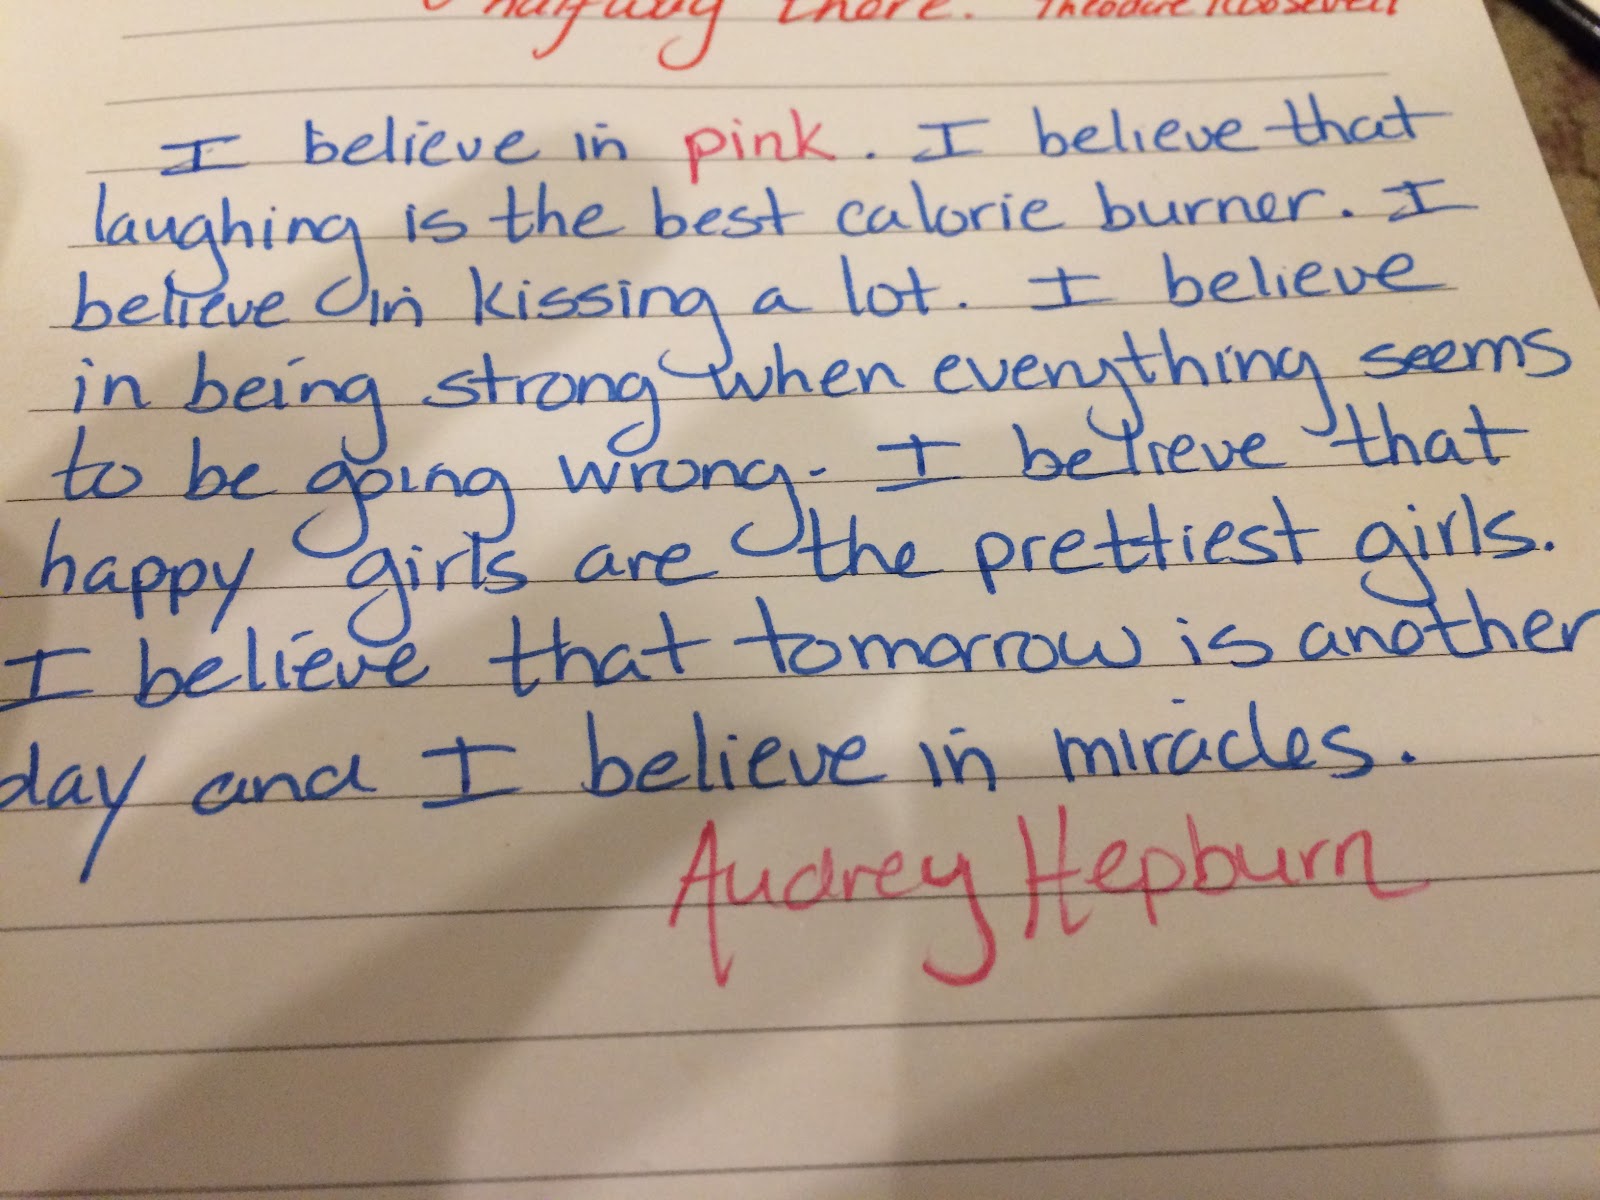 halfway there. Theodore Roosevelt
I believe in pink. I believe that
laughing is the best calorie burner. I
believe in kissing a lot. I believe
in being strong when everything seems
to be going wrong. I believe that
happy girls are the prettiest girls.
I believe that tomorrow is another
day and I believe in miracles.
Audrey Hepburn